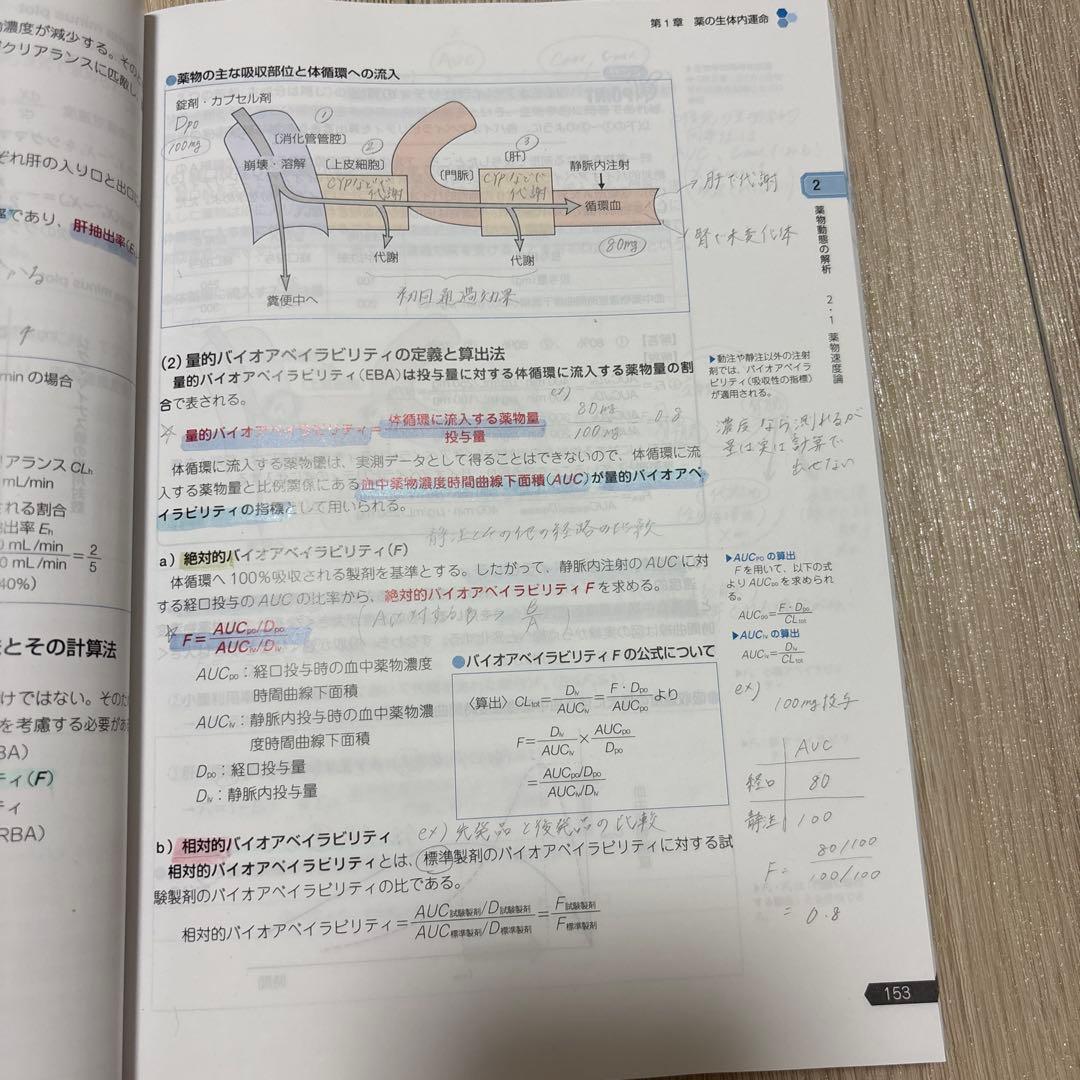 第1章 薬の生体内運命
濃度が減少する。その
クリアランスに匹敵し
ぞれ肝の入り口と出口
率であり、肝抽出率(E
min の場合
アランス CLh
mL/min
される割合
出率 Eh
0 mL/min
0 mL/min
=2/5
40%)
とその計算法
けではない。そのた
を考慮する必要があ
BA)
ティ(F)
ティ
RBA)
●薬物の主な吸収部位と体循環への流入
錠剤・カプセル剤
Dpo
100mg
①
〔消化管管腔〕
崩壊・溶解
②
〔上皮細胞〕
CYPなどで
代謝
〔門脈〕
③
〔肝〕
CYPなどで
代謝
静脈内注射
循環血
80mg
→肝で代謝
腎で未変化体
代謝
代謝
糞便中へ
初回通過効果
2
薬物動態の解析
2・1 薬物速度論
(2) 量的バイオアベイラビリティの定義と算出法
量的バイオアベイラビリティ(EBA)は投与量に対する体循環に流入する薬物量の割
合で表される。
量的バイオアベイラビリティ=体循環に流入する薬物量/投与量
ex) 80mg/100mg=0.8
体循環に流入する薬物量は、実測データとして得ることはできないので、体循環に流
入する薬物量と比例関係にある血中薬物濃度時間曲線下面積(AUC)が量的バイオアベ
イラビリティの指標として用いられる。
▶動注や静注以外の注射
剤では、バイオアベイラ
ビリティ(吸収性の指標)
が適用される。
濃度なら測れるが
量は実は計算で
出せない
静注とその他の経路の比較
a) 絶対的バイオアベイラビリティ(F)
体循環へ100%吸収される製剤を基準とする。したがって、静脈内注射の AUC に対
する経口投与の AUC の比率から、絶対的バイオアベイラビリティ F を求める。
(Aに対するB→B/A)
F=(AUCpo/Dpo)/(AUCiv/Div)
AUCpo:経口投与時の血中薬物濃度
時間曲線下面積
AUCiv:静脈内投与時の血中薬物濃
度時間曲線下面積
Dpo:経口投与量
Div:静脈内投与量
●バイオアベイラビリティ F の公式について
〈算出〉CLtot=Div/AUCiv=F・Dpo/AUCpo より
F=Div/AUCiv×AUCpo/Dpo
=(AUCpo/Dpo)/(AUCiv/Div)
▶AUCPO の算出
F を用いて、以下の式
より AUCpo を求められ
る。
AUCpo=F・Dpo/CLtot
▶AUCiv の算出
AUCiv=Div/CLtot
ex)
100mg投与
AUC
経口 80
静注 100
F=(80/100)/(100/100)
=0.8
b) 相対的バイオアベイラビリティ
ex) 先発品と後発品の比較
相対的バイオアベイラビリティとは、標準製剤のバイオアベイラビリティに対する試
験製剤のバイオアベイラビリティの比である。
相対的バイオアベイラビリティ=(AUC試験製剤/D試験製剤)/(AUC標準製剤/D標準製剤)=F試験製剤/F標準製剤
153